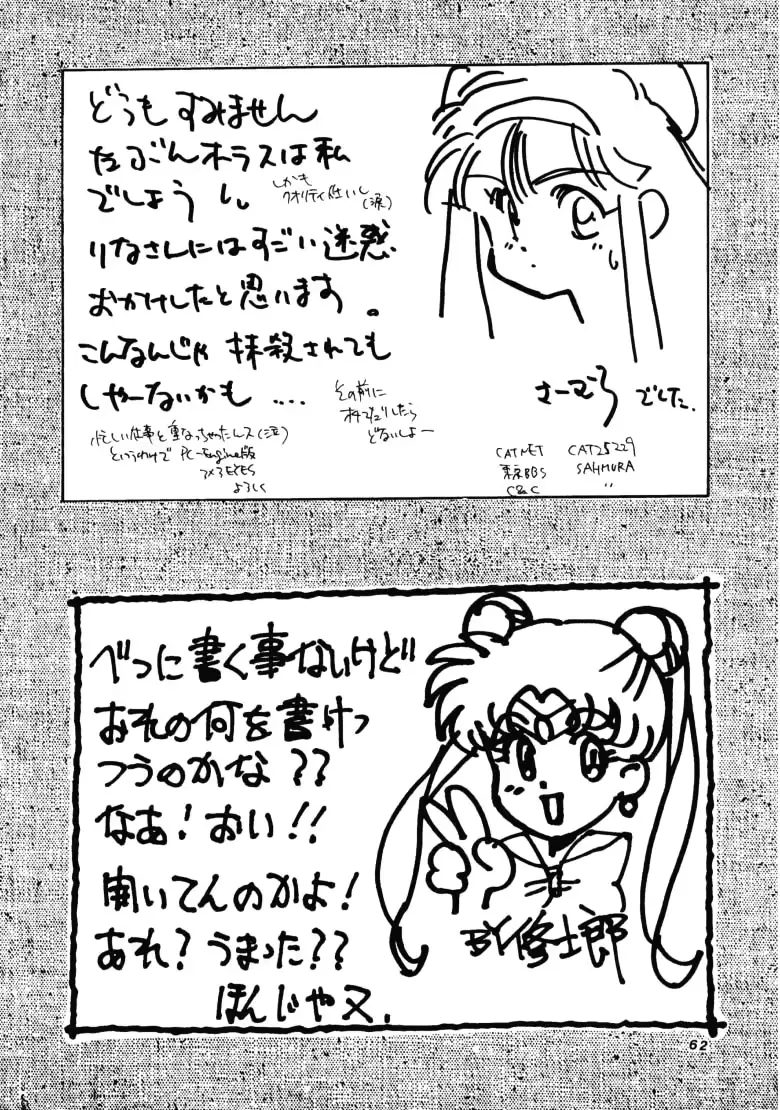 どうもすみません
たぶんホラスは私
でしょう し
しかも
クオリティ低いし
(涙)
りなさんにはすごい迷惑
おかけしたと思います。
こんなんじゃ 抹殺されても
しゃーないかも ....
その前に
どないしよー
忙しい仕事と重なっちゃったんス(泣)
というわけで PC-Engine版
3×3EYES
よろしく
さーむら でした.
CATNET CAT25229
東京BBS SAHMURA
C&C 〃
べつに書く事ないけど
おれの何を書けっ
つうのかな??
なあ!おい!!
聞いてんのかよ!
あれ?うまった??
ほんじゃ又.
BY修士郎
62